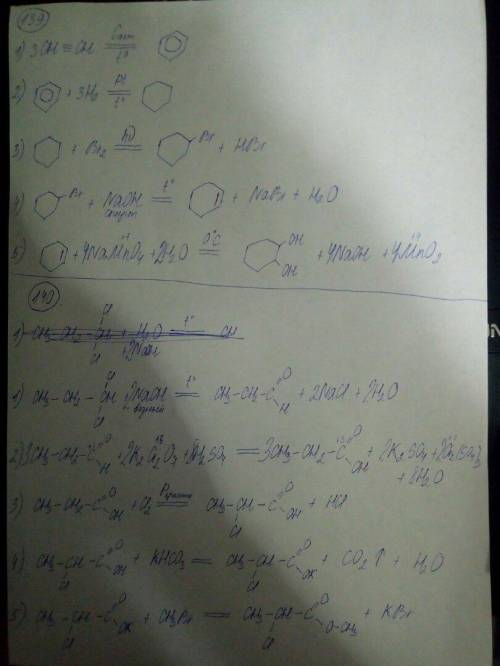 139
1) 3CH≡CH =(Cакт, t°)= ⌬
2) ⌬ + 3H₂ =(Pt, t°)= ⬡
3) ⬡ + Br₂ =(hν)= ⬡-Br + HBr
4) ⬡-Br + NaOH спирт =(t°)= ⬡ + NaBr + H₂O
5) ⬡ + NaMnO₄ + 2H₂O =(0°C)= ⬡ OH OH + NaOH + MnO₂
140
1) CH₃-CH₂-CH(Cl)-Cl + H₂O =(t°)= CH
2NaOH
1) CH₃-CH₂-CH(Cl)-Cl + 2NaOH водный =(t°)= CH₃-CH₂-C(=O)-H + 2NaCl + H₂O
2) 3CH₃-CH₂-C(=O)-H + K₂Cr₂O₇ + H₂SO₄ = 3CH₃-CH₂-C(=O)-OH + K₂SO₄ + Cr₂(SO₄)₃
+ H₂O
3) CH₃-CH₂-C(=O)-OH + Cl₂ =(Pкрасный)= CH₃-CH(Cl)-C(=O)-OH + HCl
4) CH₃-CH(Cl)-C(=O)-OH + KHCO₃ = CH₃-CH(Cl)-C(=O)-OK + CO₂↑ + H₂O
5) CH₃-CH(Cl)-C(=O)-OK + CH₃Br = CH₃-CH(Cl)-C(=O)-O-CH₃ + KBr